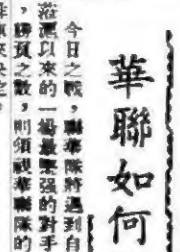 華聯如何
今日之戰，聯華隊將遇到自
菈酒以來的一場最堅强的對手
，勝負之數，則須視華聯隊的